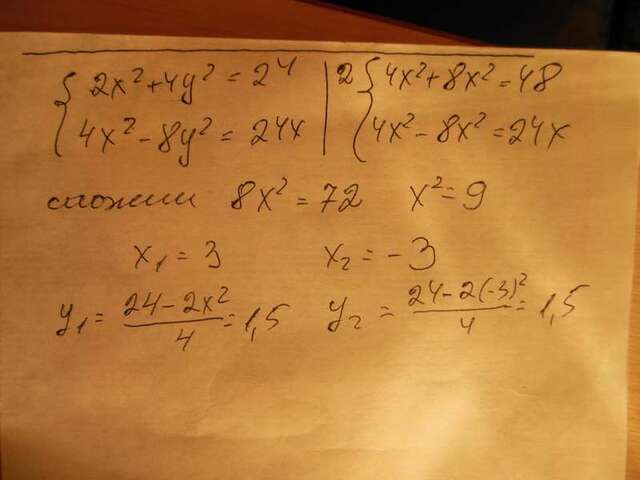 { 2x² + 4y² = 24 | 2 { 4x² + 8x² = 48
4x² - 8y² = 24x 4x² - 8x² = 24x
сложили 8x² = 72 x² = 9
x₁ = 3 x₂ = -3
y₁ = (24 - 2x²)/4 = 1,5 y₂ = (24 - 2(-3)²)/4 = 1,5